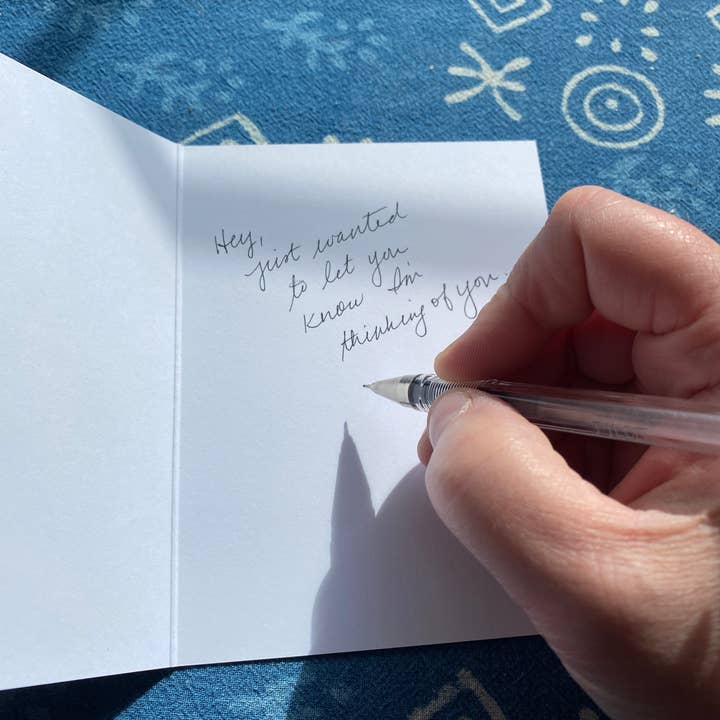 Hey,
just wanted
to let you
know I'm
thinking of you.